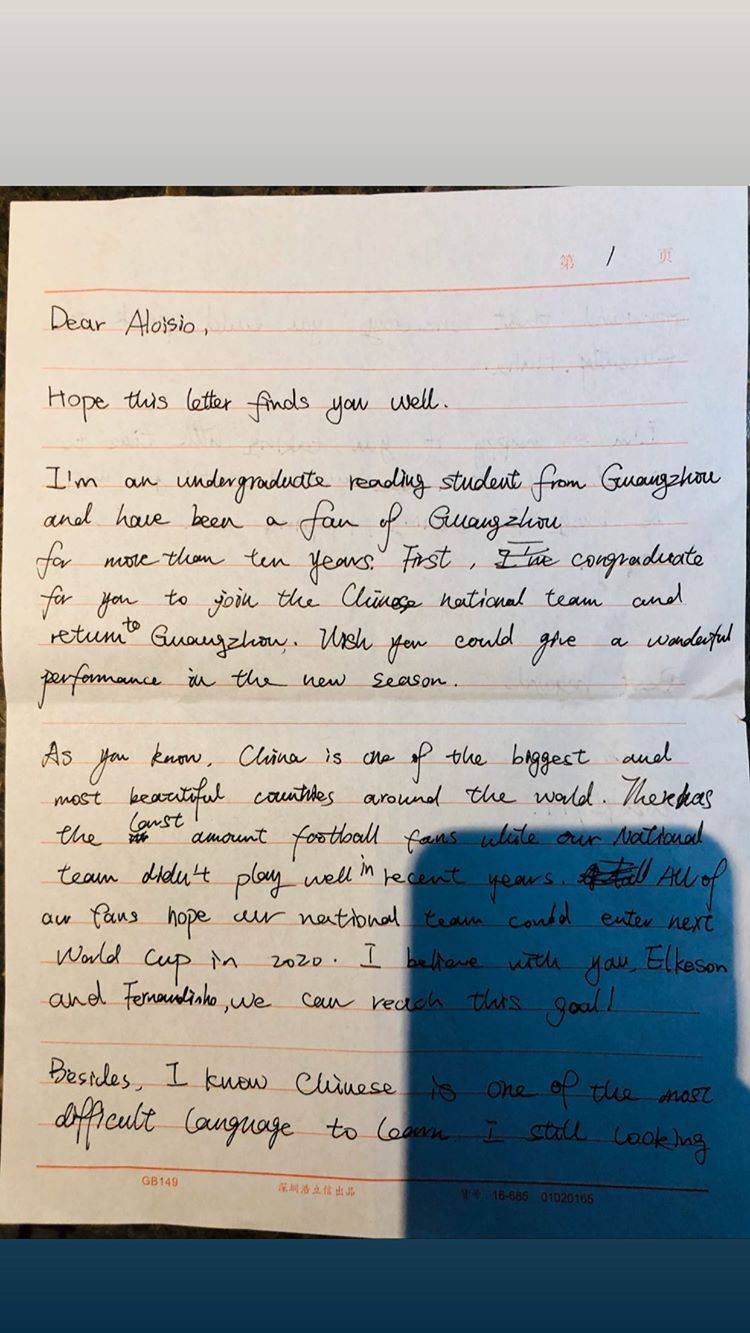 第 1 页
Dear Aloisio,
Hope this letter finds you well.
I'm an undergraduate reading student from Guangzhou
and have been a fan of Guangzhou
for more than ten years. First, I've congraduate
for you to join the Chinese national team and
return to Guangzhou. Wish you could give a wonderful
performance in the new season.
As you know, China is one of the biggest and
most beautiful countries around the world. There has
the amount football fans while our National
team didn't play well in recent years. All of
our fans hope our national team could enter next
World Cup in 2020. I believe with you, Elkeson
and Fernandinho, we can reach this goal!
Besides, I know Chinese is one of the most
difficult language to learn I still looking
GB149 深圳浩立信出品 货号 16-685 01020165